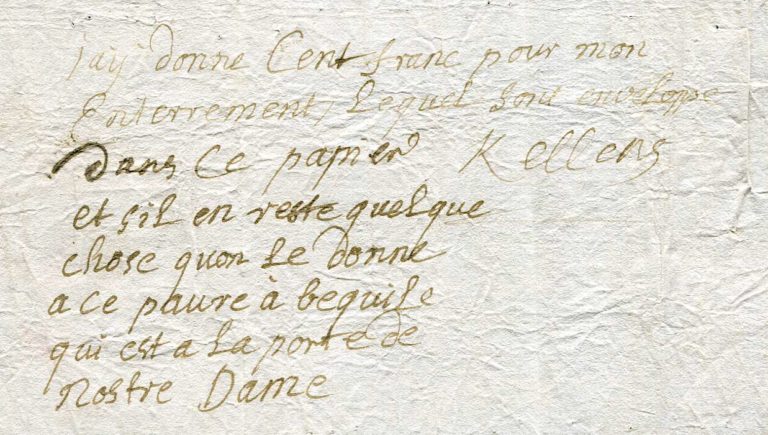 jaij donne Cent franc pour mon
Enterrement, Lequel sont enveloppe
Dans Ce papier Kellens
et sil en reste quelque
chose quon Le donne
a ce pauvre à bequile
qui est a La porte de
Nostre Dame